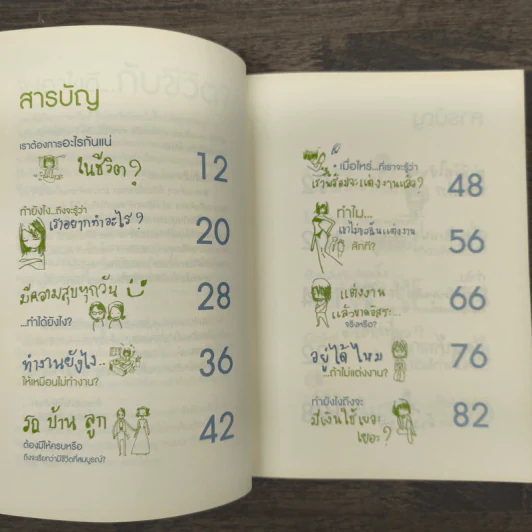 สารบัญ
เราต้องการอะไรกันแน่
ในชีวิต?
12
ทำยังไง...ถึงจะรู้ว่า
เราอยากทำอะไร?
20
มีความสุขทุกวัน
...ทำได้ยังไง?
28
ทำงานยังไง..
ให้เหมือนไม่ทำงาน?
36
รถ บ้าน ลูก
ต้องมีให้ครบหรือ
ถึงจะเรียกว่ามีชีวิตที่สมบูรณ์?
42
เมื่อไหร่...ที่เราจะรู้ว่า
เราพร้อมจะแต่งงานแล้ว?
48
ทำไม...
เขาไม่ขอฉันแต่งงาน
สักที?
56
แต่งงาน
แล้วขาดอิสระ...
จริงหรือ?
66
อยู่ได้ไหม
...ถ้าไม่แต่งงาน?
76
ทำยังไงถึงจะ
มีเงินใช้เยอะ
เยอะ?
82